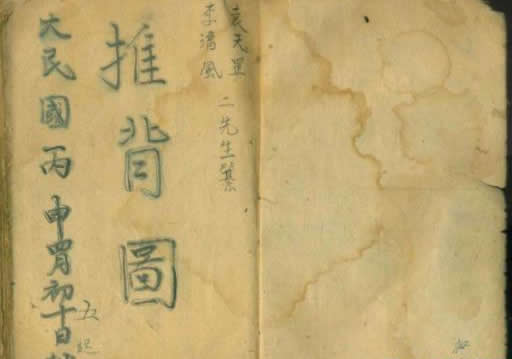 袁天罡
李淳風
二先生
推背圖
大民國丙申四月初十日
五